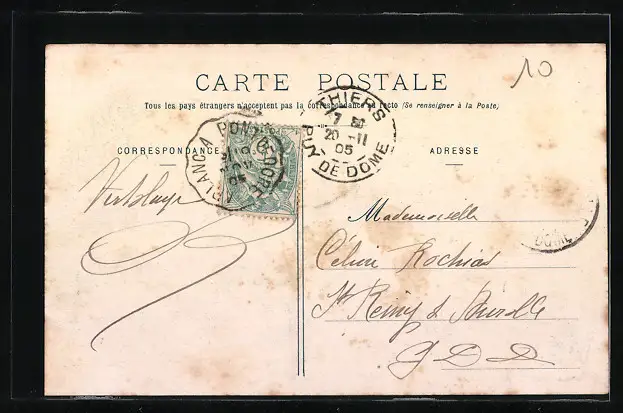 10
CARTE POSTALE
Tous les pays étrangers n'acceptent pas la correspondance au recto (Se renseigner à la Poste)
CORRESPONDANCE
ADRESSE
THIERS
20 -11
05
PUY DE DOME
Mademoiselle
Céline Rochias
St Remy s Durolle
P D D